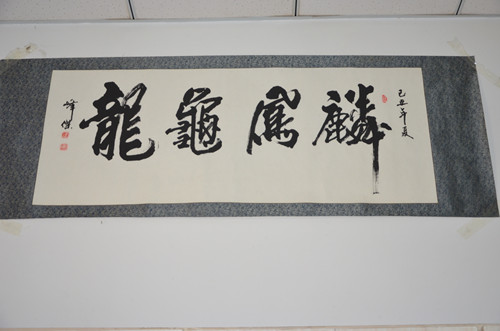 己丑年夏
麟鳳龜龍